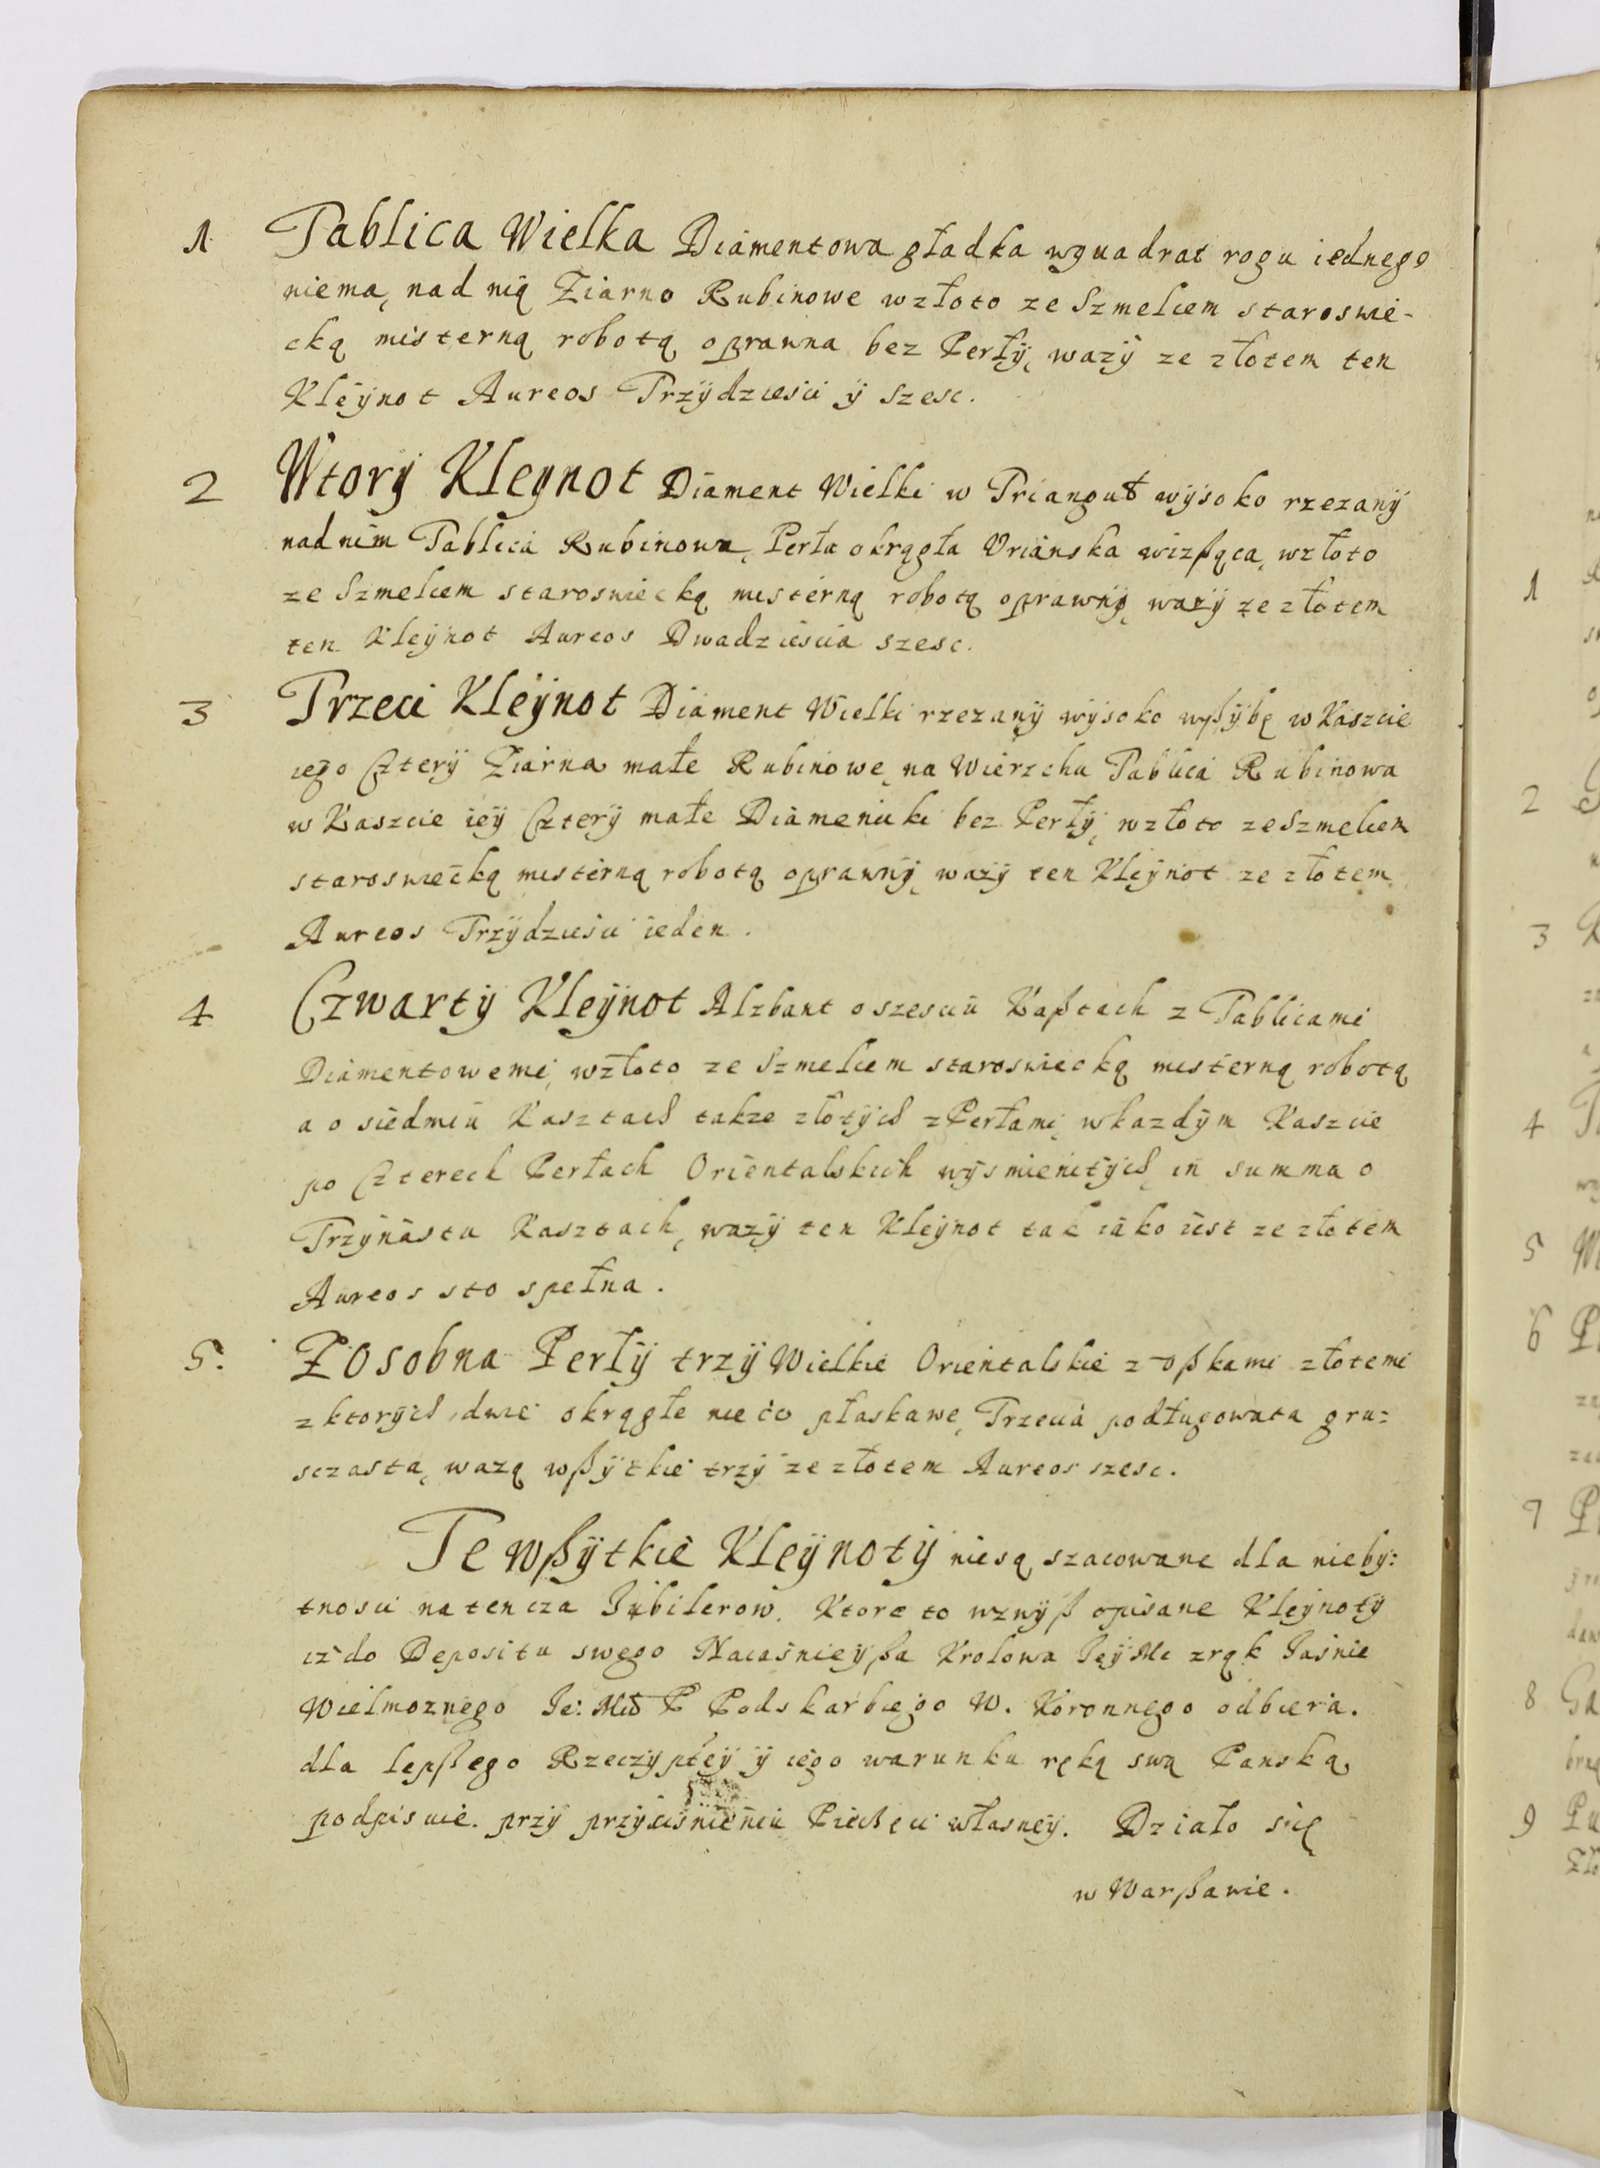 1 Tablica Wielka Diamentowa gładka wquadrat rogu iednego
niema, nad nią Ziarno Rubinowe wzłoto ze Szmelcem staroswie-
cką misterną robotą oprawna bez Perły, wazÿ ze złotem ten
Kleÿnot Aureos Trzÿdziesci ÿ szesc.
2 Wtorÿ Kleynot Diament Wielki w Trianguł wÿsoko rzezanÿ
nad nim Tablica Rubinowa, Perła okrągła Urianska wizßąca, wzłoto
ze Szmelcem staroswiecką misterną robotą oprawnÿ, wazÿ ze złotem
ten Kleÿnot Aureos Dwadziescia szesc.
3 Trzeci Kleÿnot Diament Wielki rzezanÿ wÿsoko wßÿbę w Kaszcie
iego Czterÿ Ziarna małe Rubinowe, na Wierzchu Tablica Rubinowa
w Kaszcie ieÿ Czterÿ małe Diamenciki bez Perłÿ, wzłoto ze Szmelcem
staroswiecką misterną robotą oprawnÿ, wazÿ ten Kleÿnot ze złotem
Aureos Trzÿdziesci ieden.
4 Czwartÿ Kleÿnot Alzbant o szesciu Kaßtach z Tablicami
Diamentowemi, wzłoto ze Szmelcem staroswiecką misterną robotą
a o siedmiu Kasztach takze złotÿch z Perłami, wkazdÿm Kaszcie
po Czterech Perłach Orientalskich wÿsmienitÿch, in summa o
Trzÿnastu Kasztach, wazÿ ten Kleÿnot tak iako iest ze złotem
Aureos sto spełna.
5. Zosobna Perłÿ trzÿ Wielkie Orientalskie z złotemi
z ktorÿch dwie okrągłe nieco płaskawe, Trzecia podługowata gru=
sczasta, wazą wßÿtkie trzÿ ze złotem Aureos szesc.
Te wßÿtkie Kleÿnotÿ niesą szacowane dla nieby:
tnosci natencza Jubilerow. Ktore to wzwÿß opisane Kleÿnotÿ
iz do Depositu swego Naiasnieÿßa Krolowa JeÿMc zrąk Jasnie
Wielmoznego Je: Mci P Podskarbiego W. Koronnego odbiera.
dla lepßego Rzeczÿpteÿ ÿ iego warunku ręką swą Panską
podpisuie. przÿ przÿcisnieniu Pieczęci własneÿ. Działo się
w Warßawie.